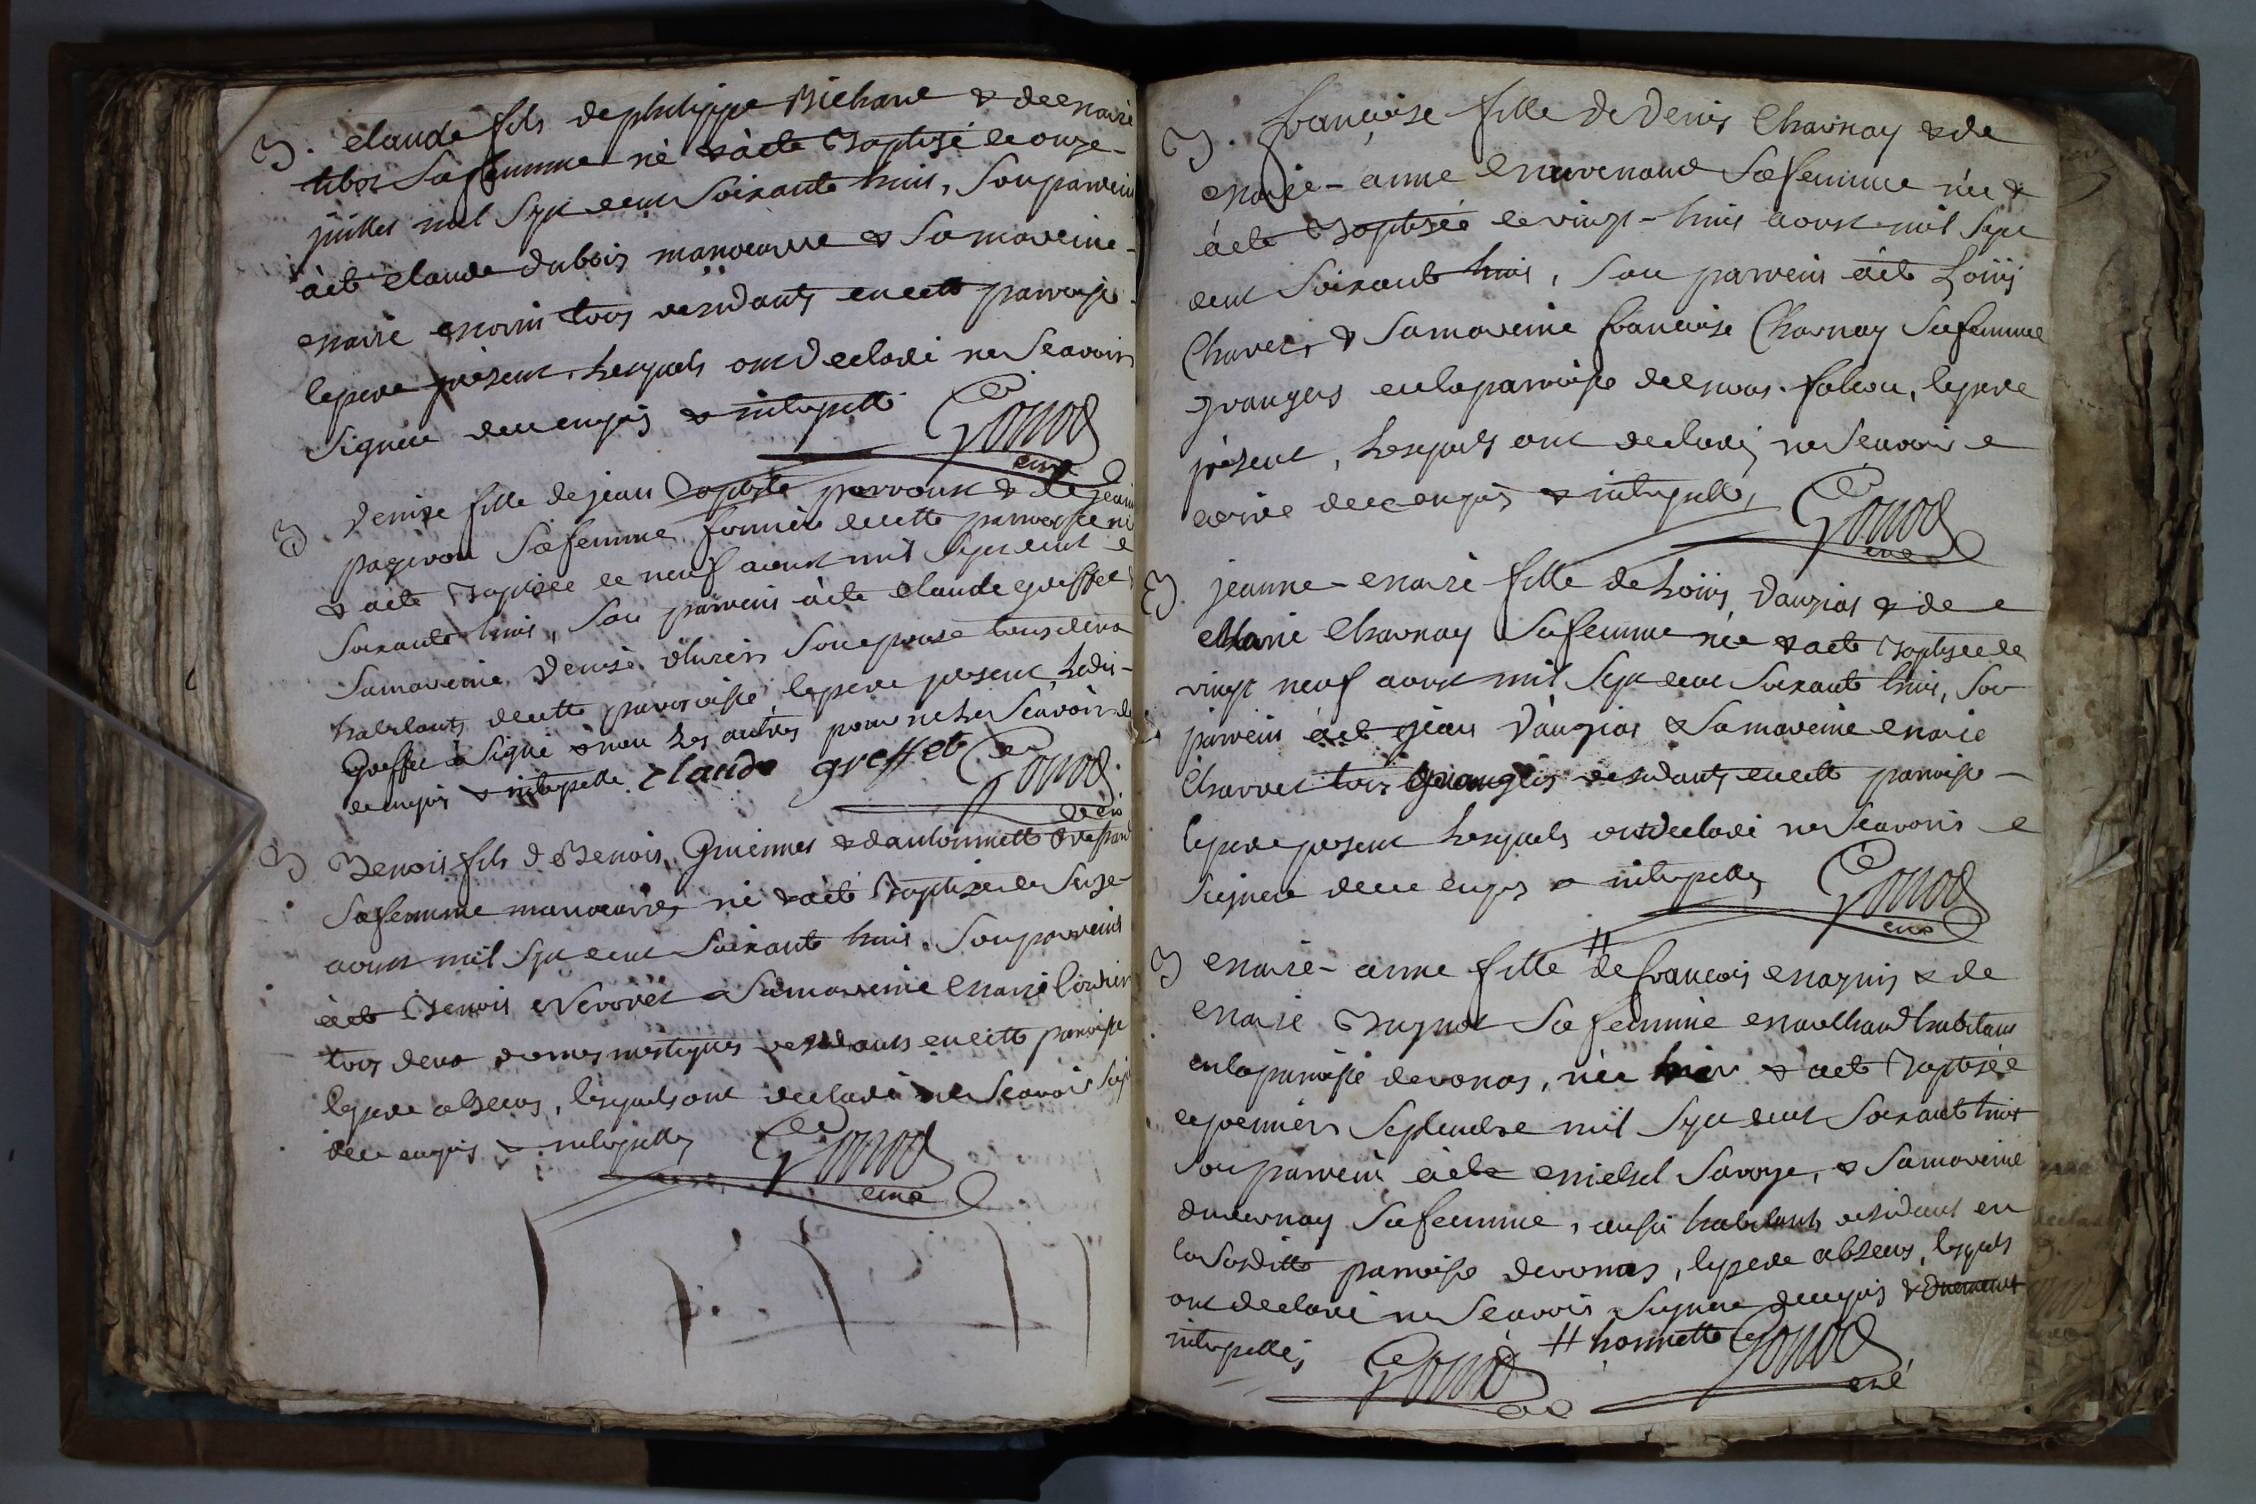 B. Claude fils de philippe Michaut & de marie
tibot sa femme né & a été Baptisé le onze
juillet mil sept cent soixante huit, son parrein
à été Claude dubois manoeuvre & sa marreine
marie morin tous residants en cette parroisse
le pere present, lesquels ont declaré ne sçavoir
signer de ce enquis & interpellé Gonod
curé
B. Denise fille de jean Baptiste perroux & de jeanne
sa femme fermier de cette parroisse née
& a été Baptisée le neuf aoust mil sept cent
soixante huit, son parrein à été Claude greffet &
sa marreine Denise son epouse tous deux
habitants de cette parroisse le pere present, ledit
Greffet à signé & non les autres pour ne le sçavoir de
ce enquis & interpellé Claude greffet Gonod
curé
B Benois fils de Benois Guiennet & d'antoinette
sa femme manoeuvres né & à été Baptisé le seize
aoust mil sept cent soixante huit, son parrein
à été Benois & sa marreine marie
tous deux domesmestiques residants en cette parroisse
le pere absens, lesquels ont declaré ne sçavoir
de ce enquis & interpellés Gonod
curé
B. françoise fille de Denis Charnay & de
marie-anne sa femme née &
à été Baptisée le vingt-huit aoust mil sept
cent soixante huit, son parrein à été Loüis
Charvet & sa marreine françoise Charnay sa femme
grangers en la parroisse de falcon, le pere
présent, lesquels ont declaré ne sçavoir
ecrire de ce enquis & interpellés Gonod
curé
B. jeanne-marie fille de Loüis Daugias & de
Marie Charnay sa femme née & a été Baptisée le
vingt neuf aoust mil sept cent soixante huit, son
parrein à été jean Daugias & sa marreine marie
Charvet tous Grangers residants en cette parroisse
le pere present lesquels ont declaré ne sçavoir
signer de ce enquis & interpellés Gonod
curé
B marie-anne fille # de françois & de
marie Bugnot sa femme marchand habitans
en la parroisse de vonas, née hier & à été Baptisée
le premier Septembre mil sept cent soixante huit
son parrein à été michel Savoye, & sa marreine
sa femme, aussi habitants residant en
la susditte parroisse de vonas, le pere absens, lesquels
ont declaré ne sçavoir signer de ce enquis & Duement
interpellés Gonod # honnette Gonod
curé